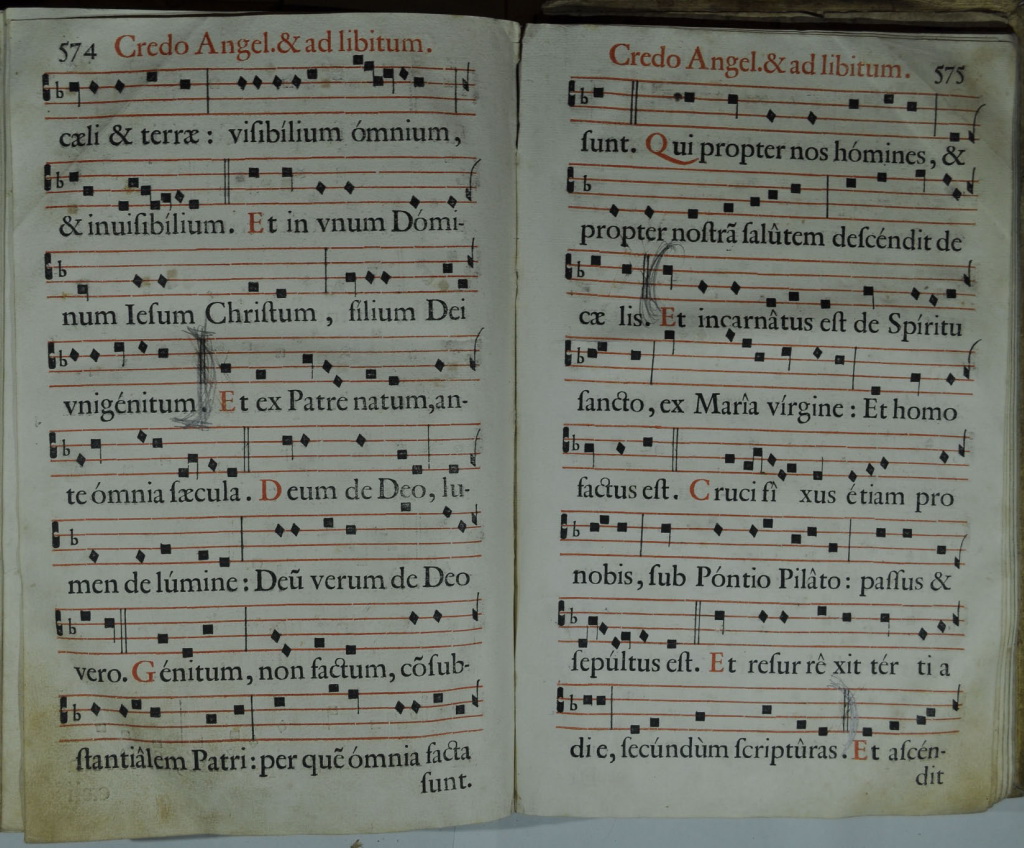 574 Credo Angel.& ad libitum.
cæli & terræ : viſibílium ómnium,
& inuiſibílium. Et in vnum Dómi-
num Ieſum Chriſtum , filium Dei
vnigénitum. Et ex Patre natum, an-
te ómnia ſæcula. Deum de Deo, lu-
men de lúmine : Deũ verum de Deo
vero. Génitum, non factum, cõſub-
ſtantiâlem Patri : per quẽ ómnia facta
ſunt.
Credo Angel.& ad libitum. 575
ſunt. Qui propter nos hómines, &
propter noſtrã ſalûtem deſcéndit de
cæ lis. Et incarnâtus eſt de Spíritu
ſancto, ex Marîa vírgine : Et homo
factus eſt. Cruci fî xus étiam pro
nobis, ſub Póntio Pilâto : paſſus &
ſepúltus eſt. Et reſur rê xit tér ti a
di e, ſecúndùm ſcriptûras. Et aſcén-
dit